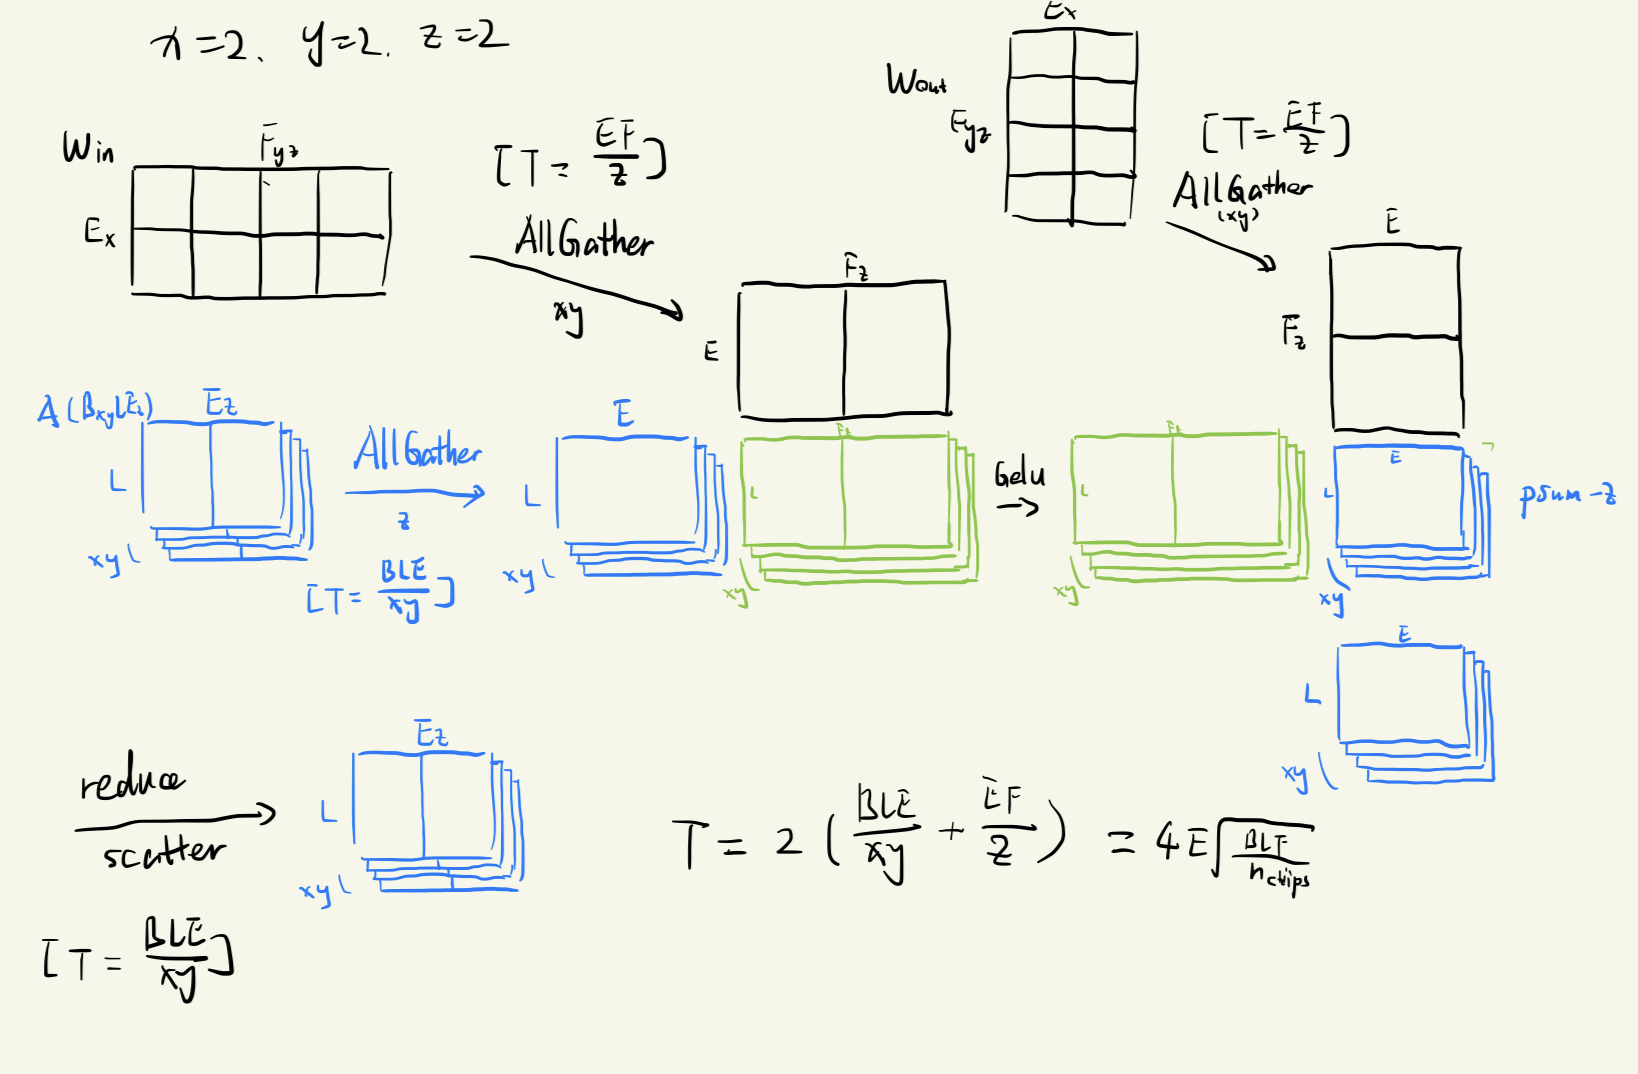 x=2、 y=2. z=2
Win
Fyz
Ex
[T= EF/z]
AllGather
xy
Ex
Wout
Fyz
[T= EF/z]
AllGather
(xy)
E
Fz
Fz
E
A(BxyLEz)
Ez
L
xy
AllGather
z
[T= BLE/xy]
E
L
xy
Fz
L
xy
Gelu
Fz
L
xy
E
L
xy
psum-z
E
L
xy
reduce
scatter
[T= BLE/xy]
Ez
L
xy
T= 2 ( BLE/xy + EF/z ) = 4E√(BLF/nchips)